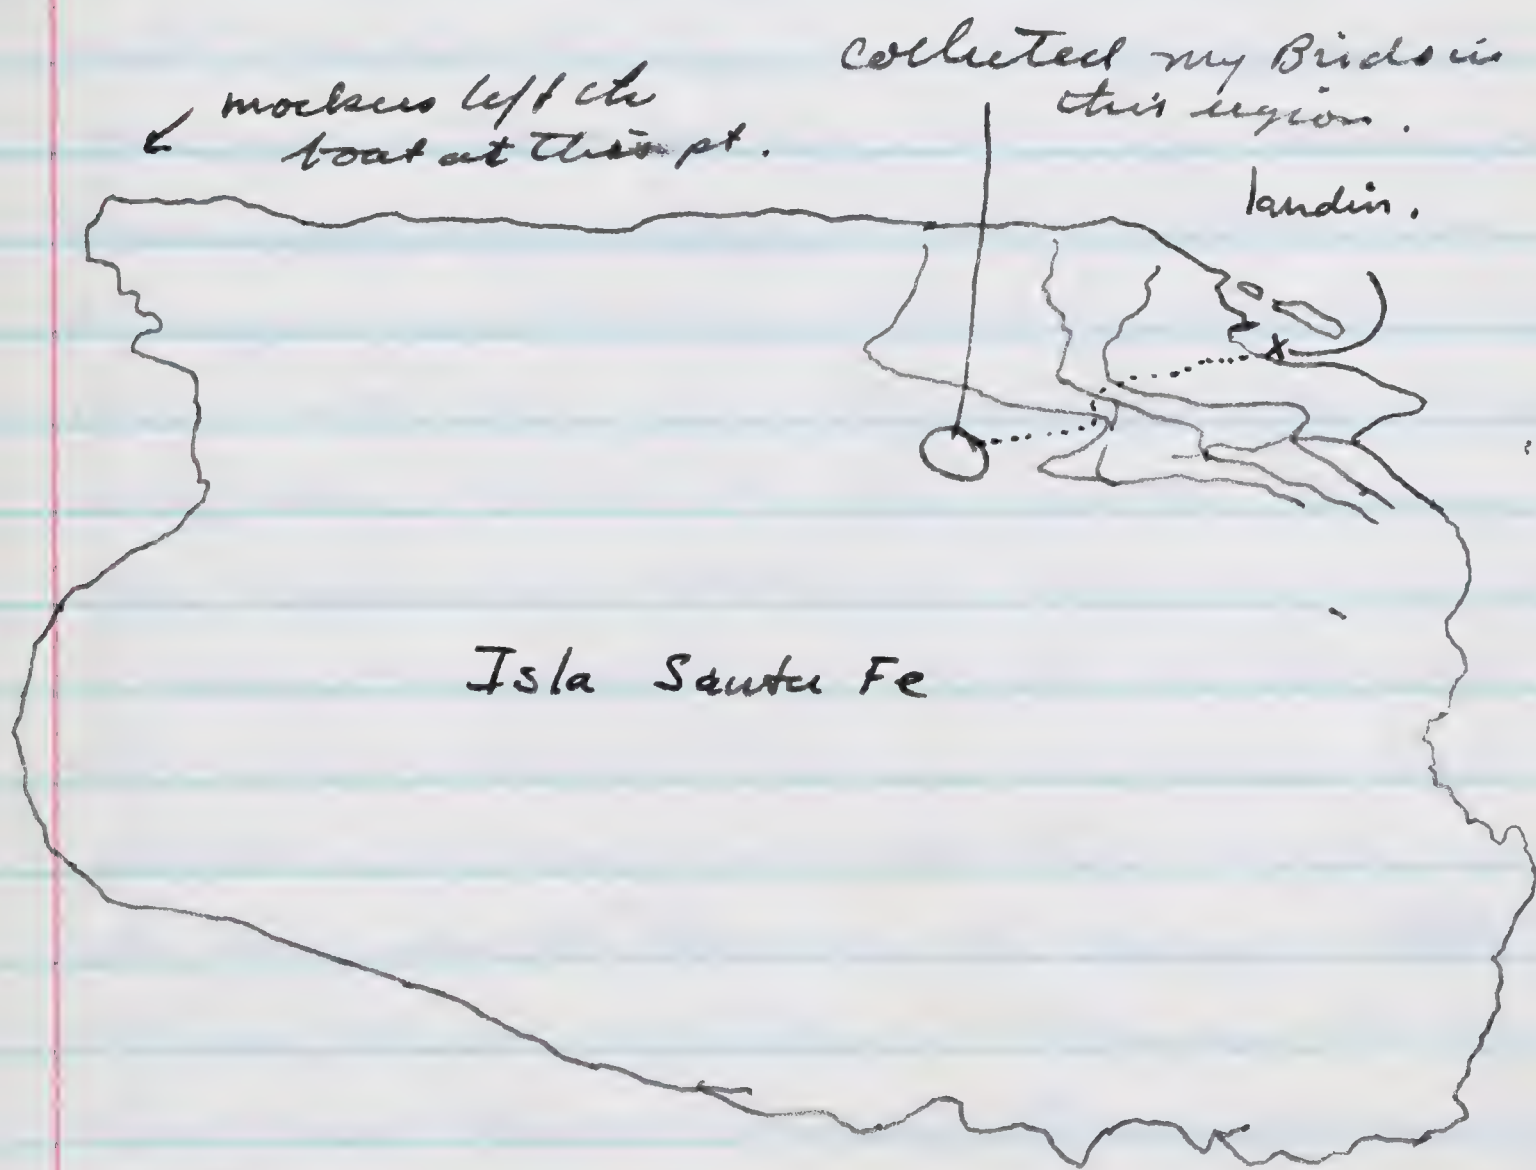 mockers left the
boat at this pt.
collected my Birds in
this region.
landin.
x
Isla Santa Fe